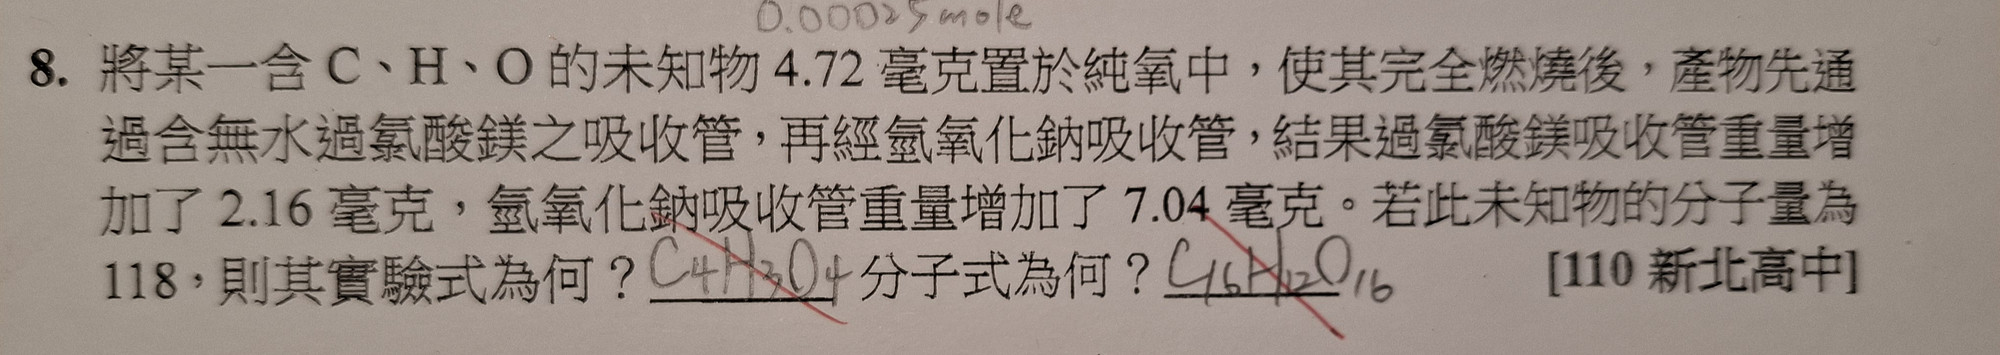 0.00025mole
8. 將某一含 C、H、O 的未知物 4.72 毫克置於純氧中，使其完全燃燒後，產物先通
過含無水過氯酸鎂之吸收管，再經氫氧化鈉吸收管，結果過氯酸鎂吸收管重量增
加了 2.16 毫克，氫氧化鈉吸收管重量增加了 7.04 毫克。若此未知物的分子量為
118，則其實驗式為何？C4H3O4 分子式為何？C16H12O16 [110 新北高中]